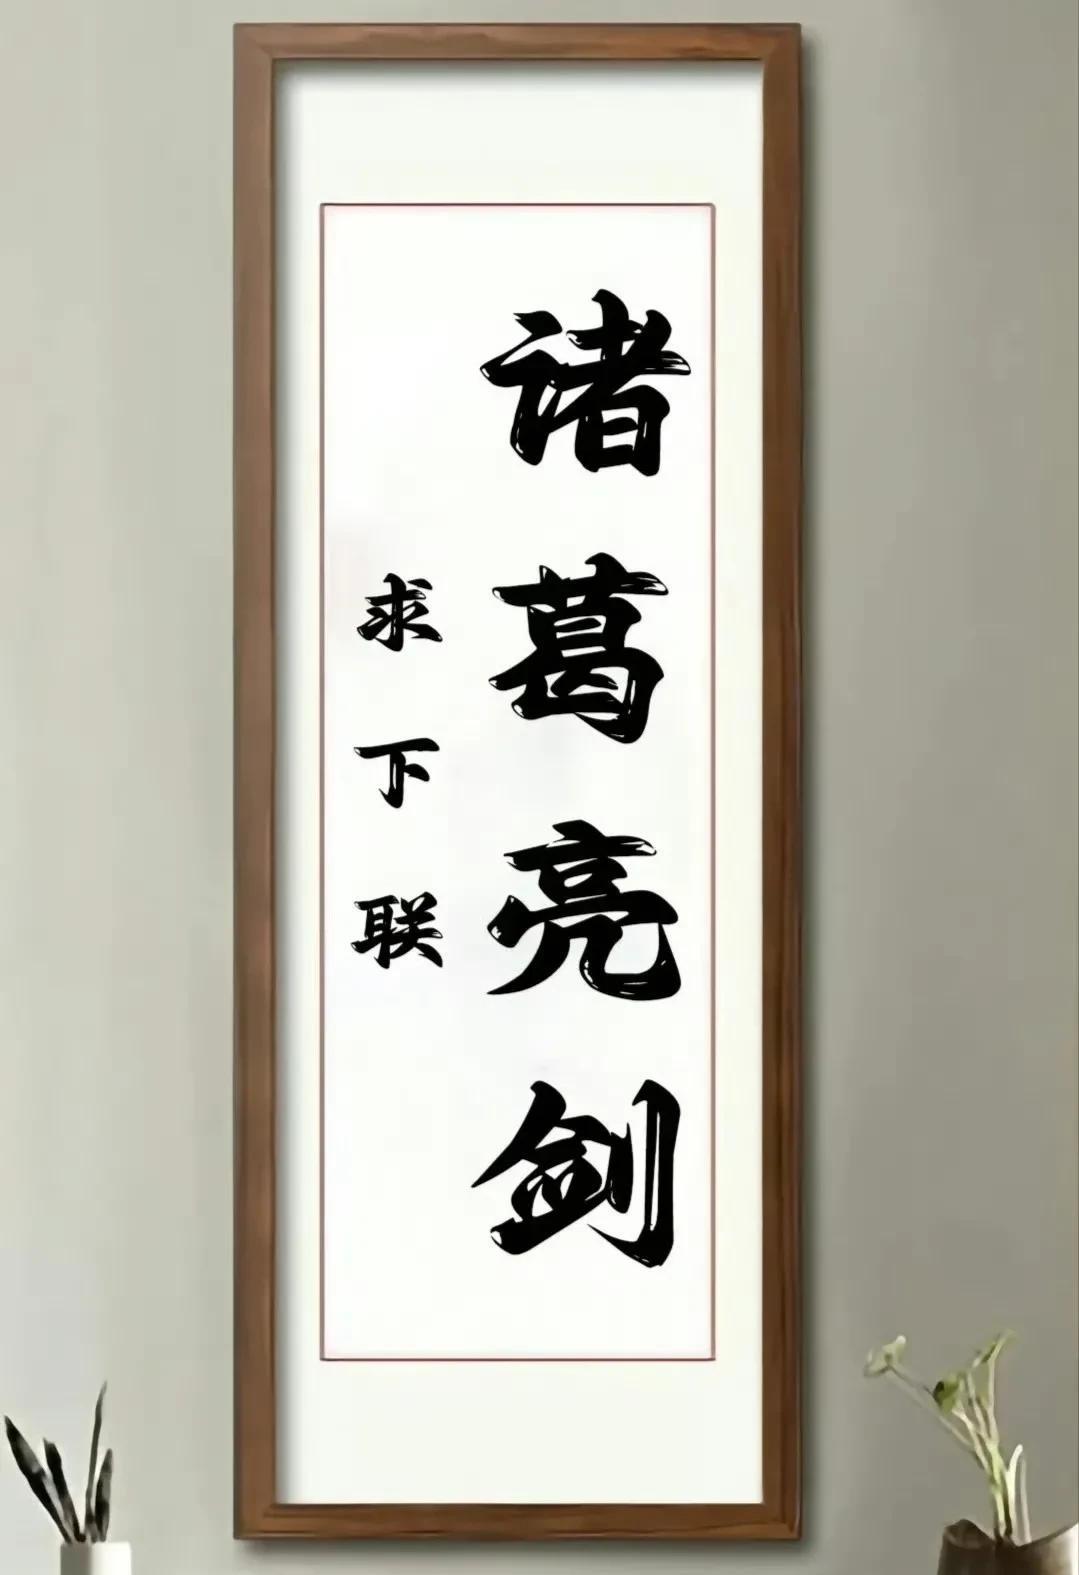 诸葛亮剑
求下联